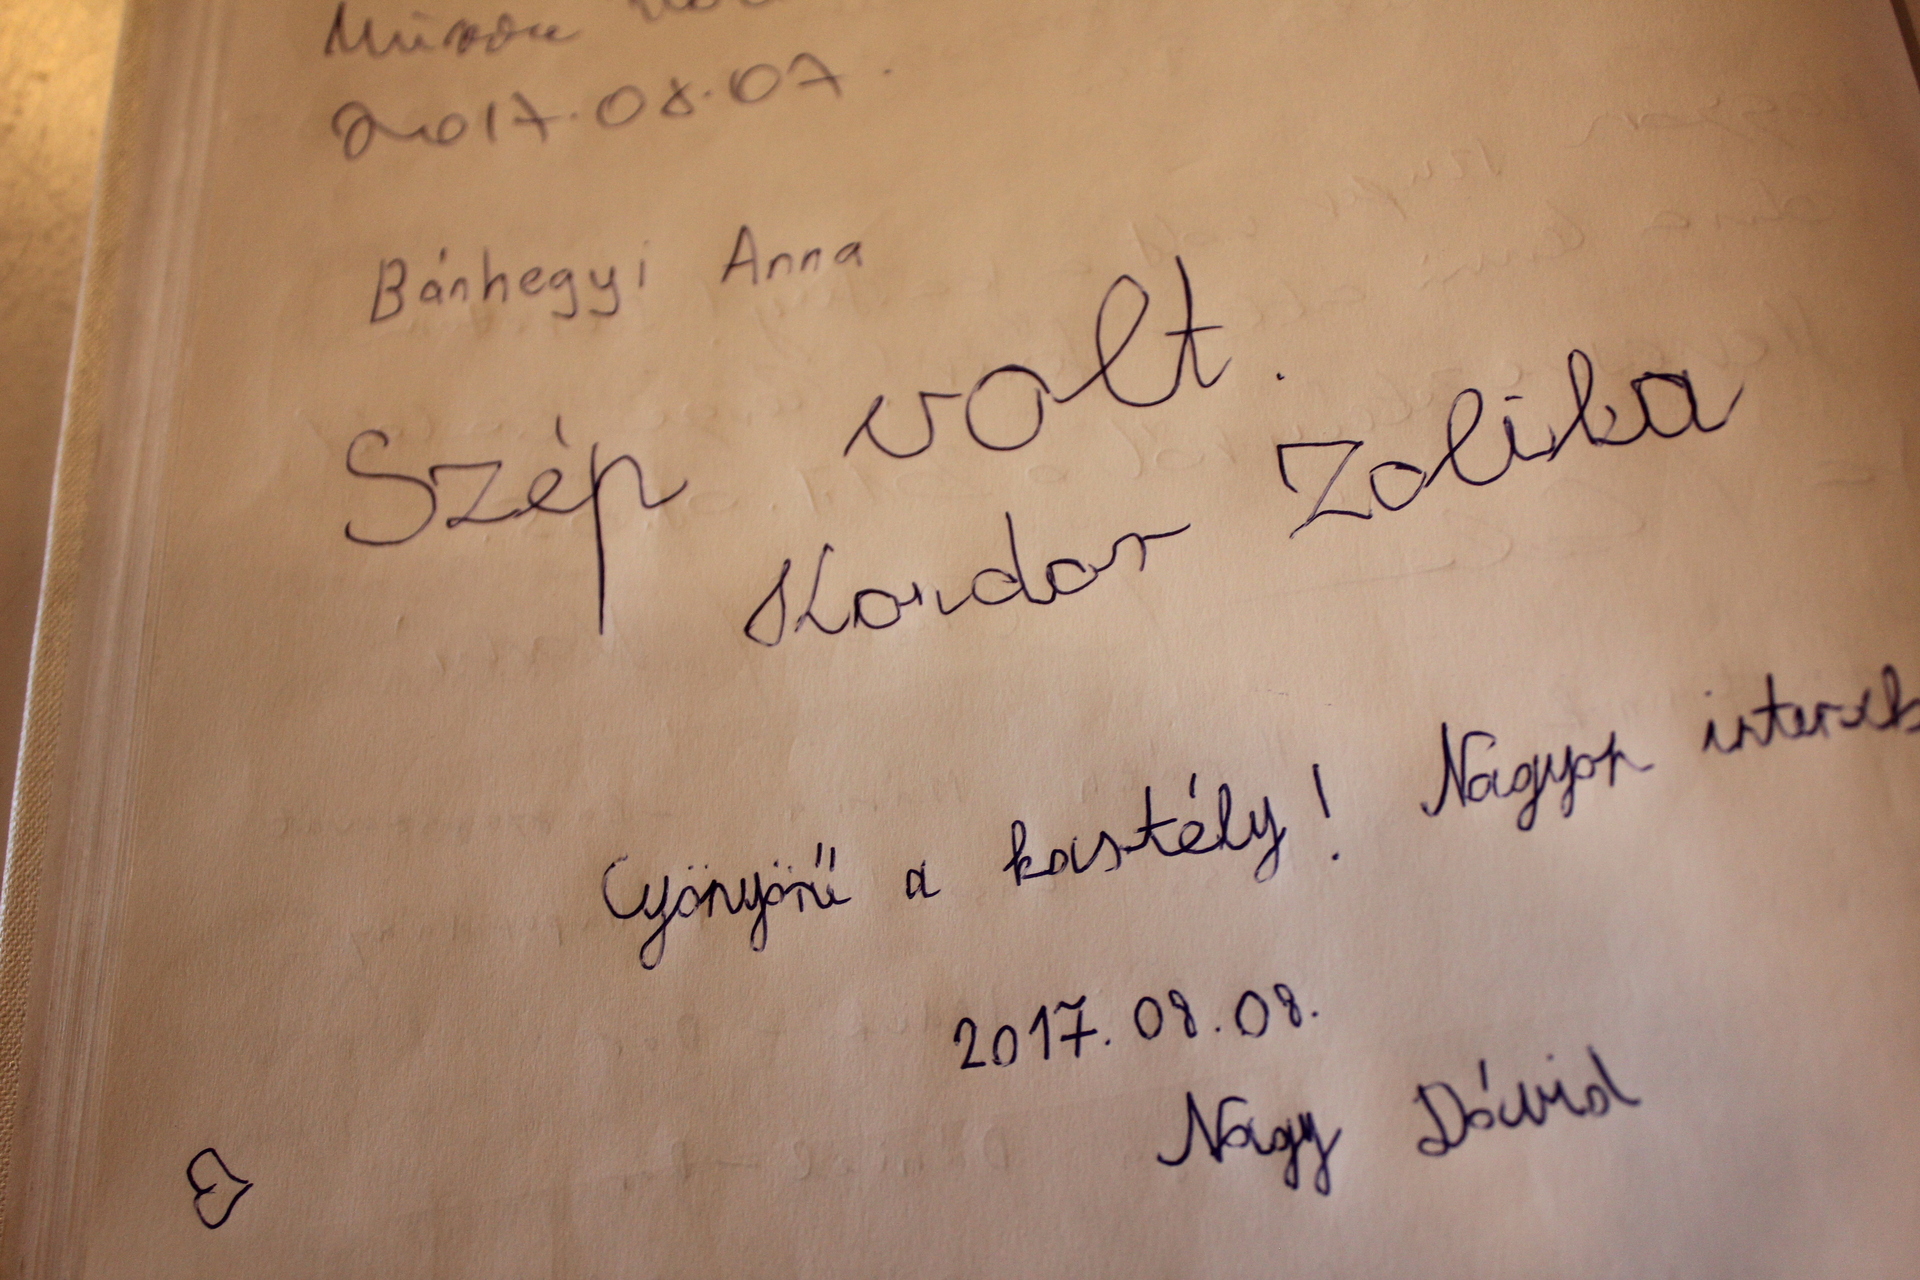 2017.08.07.
Bánhegyi Anna
Szép volt.
Kordar Zolika
Gyönyörű a kastély! Nagyon
2017.08.08.
Nagy Dávid